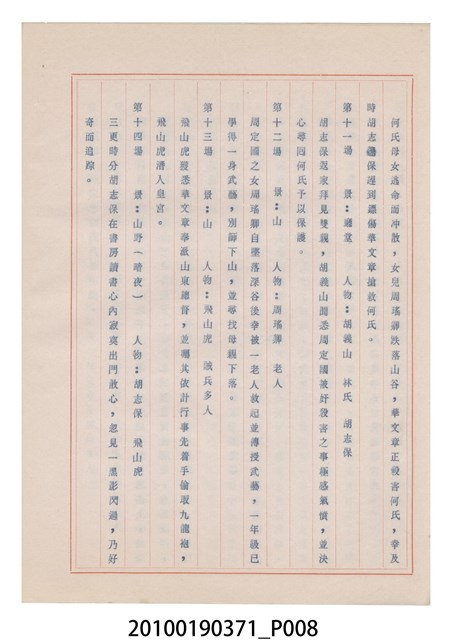 何氏母女逃命而冲散，女兒周瑤卿跌落山谷，華文章正殺害何氏，幸及
時胡志保趕到繼傷華文章搶救何氏。
第十一場　景：禮堂　人物：胡義山　林氏　胡志保
胡志保返家拜見雙親，胡義山聞悉周定國被奸殺害之事極感氣憤，並決
心尋回何氏予以保護。
第十二場　景：山　人物：周瑤卿　老人
周定國之女周瑤卿自墜落深谷後幸被一老人救起並傳授武藝，一年後已
學得一身武藝，別師下山，並尋找母親下落。
第十三場　景：山　人物：飛山虎　賊兵多人
飛山虎獲悉華文章奉派山東總督，並囑其依計行事先着手偷取九龍袍，
飛山虎潛入皇宮。
第十四場　景：山野（暗夜）　人物：胡志保　飛山虎
三更時分胡志保在書房讀書心內寂寞出門散心，忽見一黑影閃過，乃好
奇而追踪。
20100190371_P008